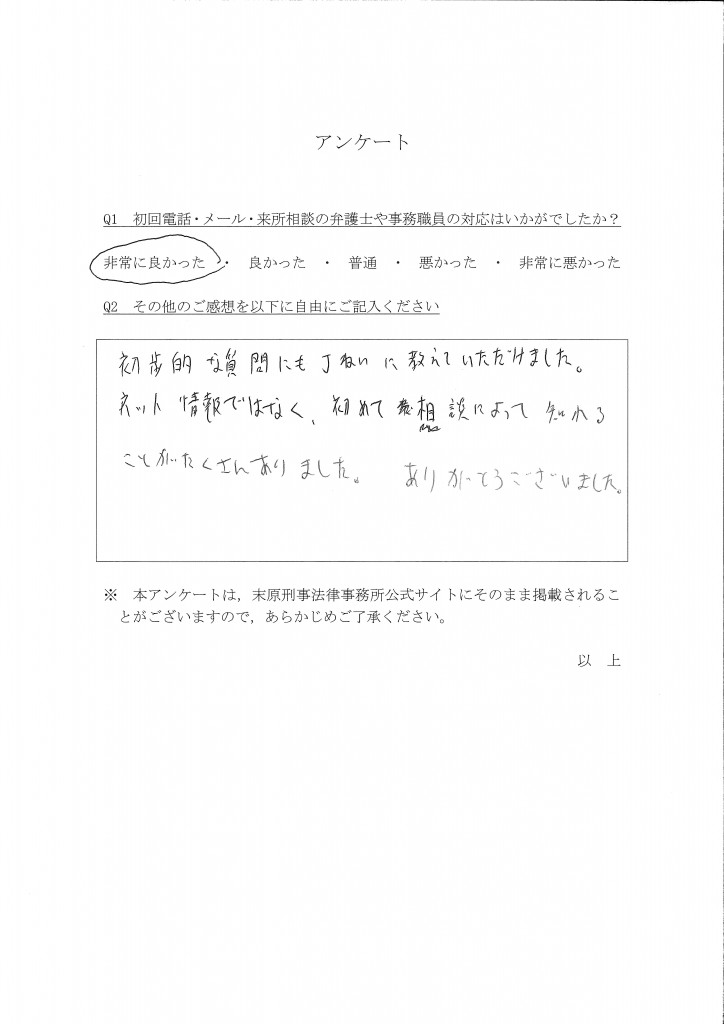 アンケート
Q1　初回電話・メール・来所相談の弁護士や事務職員の対応はいかがでしたか？
非常に良かった　・　良かった　・　普通　・　悪かった　・　非常に悪かった
Q2　その他のご感想を以下に自由にご記入ください
初歩的な質問にも丁ねいに教えていただけました。
ネット情報ではなく、初めて相談によって知れる
ことがたくさんありました。　ありがとうございました。
※　本アンケートは，末原刑事法律事務所公式サイトにそのまま掲載されるこ
とがございますので，あらかじめご了承ください。
以　上